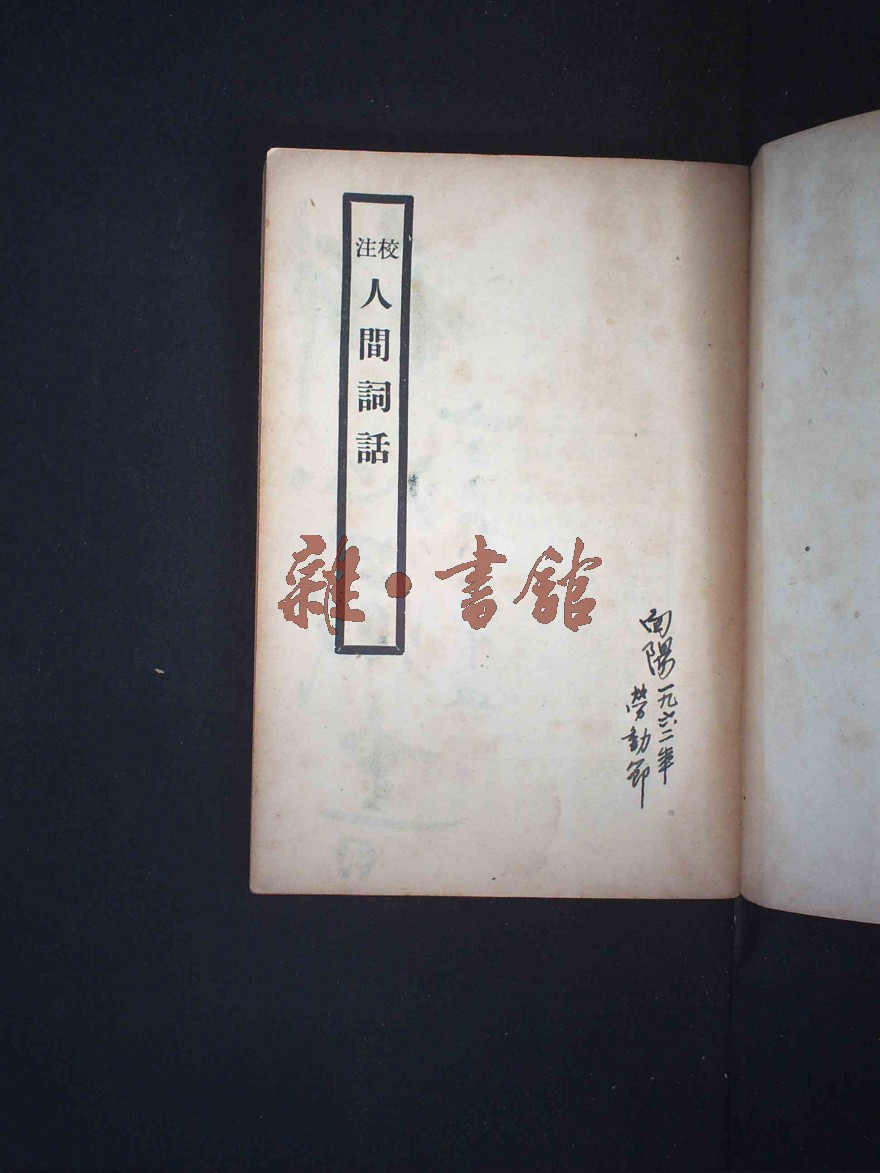 校注
人間詞話
雜·書館
向陽一九六二年
勞動節